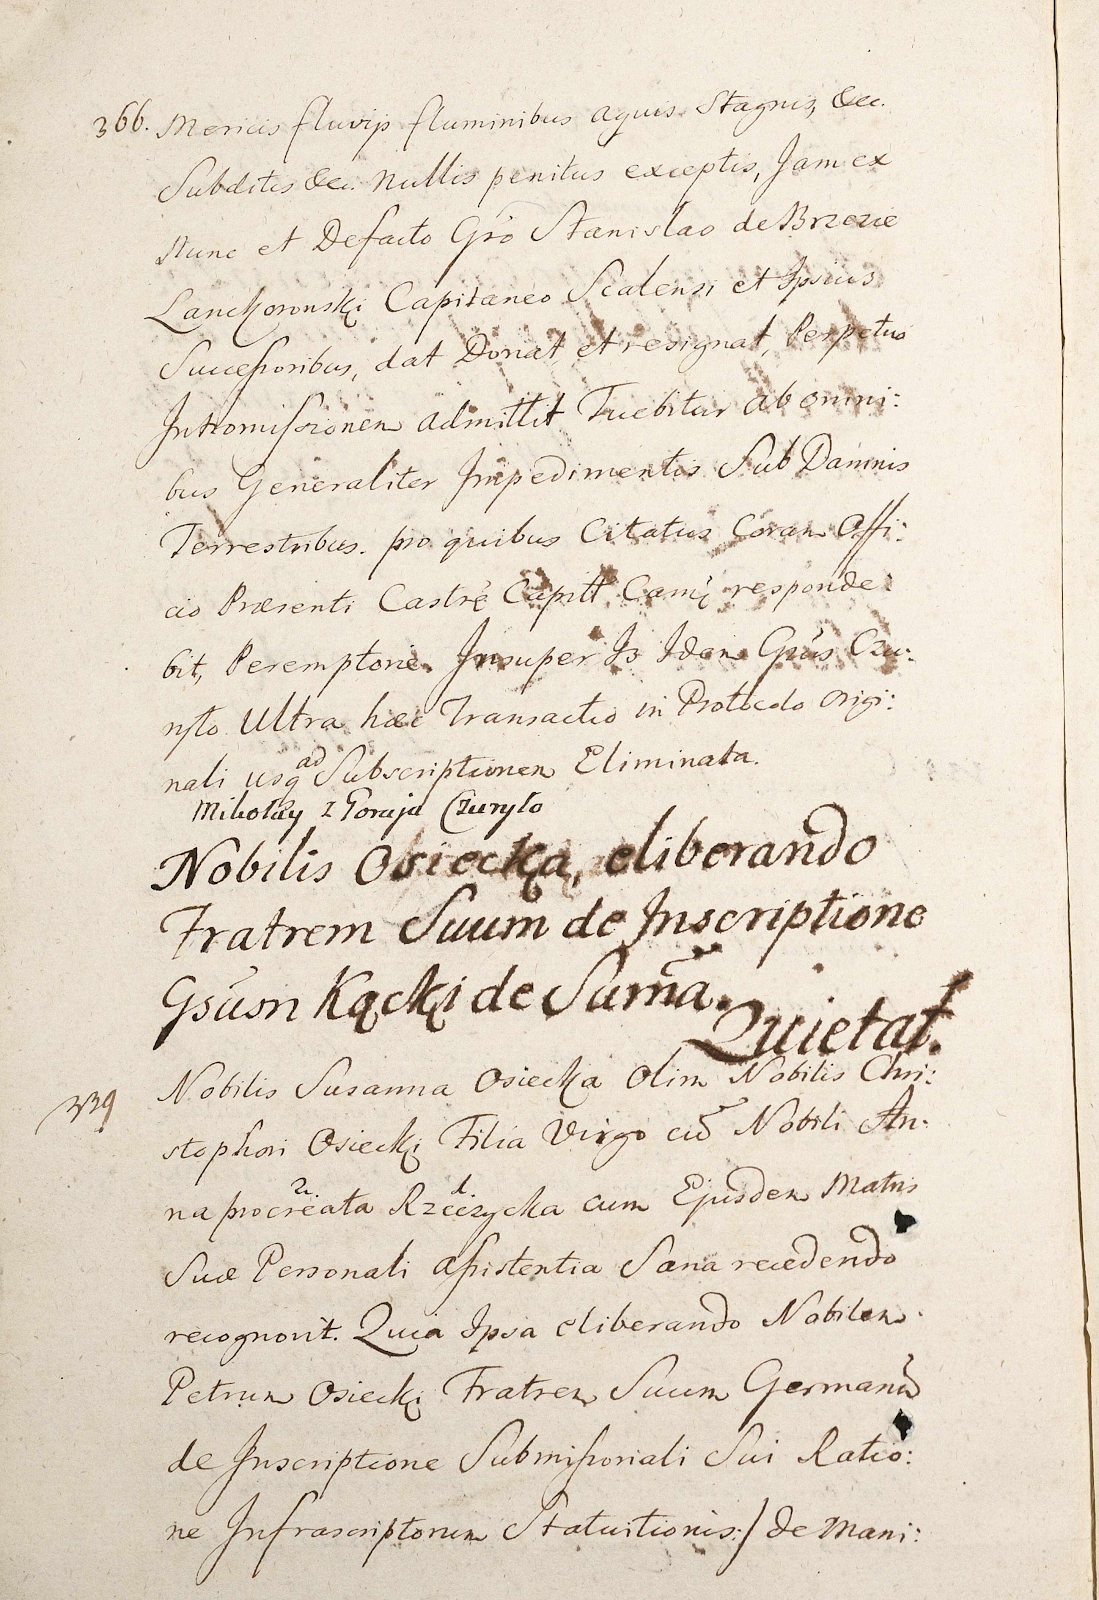 366. Mericis fluvijs fluminibus aquis Stagnis, &c.
Subditis &c. nullis penitus exceptis, Jam ex
Nunc et Defacto Gso Stanislao de Brzezie
Lanckoronski Capitaneo Scalensi et Ipsius
Successoribus, dat Donat et resignat, Perpetuo
Intromissionem admittit Tuebitur ab omni:
bus Generaliter Impedimentis Sub Damnis
Terrestribus. pro quibus Citatus Coram Offi:
cio Præsenti Castrē Capitt Cami respondē
bit, Peremptorie. Insuper Is Idem Gsus Czu:
ryło Ultra hæc Transactio in Protocolo origi:
nali usq ad Subscriptionem Eliminata.
Mikołay z Goraja Czuryło
Nobilis Osiecka, eliberando
Fratrem Suum de Inscriptione
Gsum Kącki de Suma.
Quietat.
339 Nobilis Susanna Osiecka Olim Nobilis Chri:
stophori Osiecki Filia Virgo cū Nobili An:
na procreata Rzeczycka cum Ejusdem Matris
Suæ Personali assistentia Sana recedendo
recognovit. Quia Ipsa eliberando Nobilem
Petrum Osiecki Fratrem Suum Germanū
de Inscriptione Submissoriali Sui Ratio:
ne Infrascriptorum Statuitionis:/ de Mani: